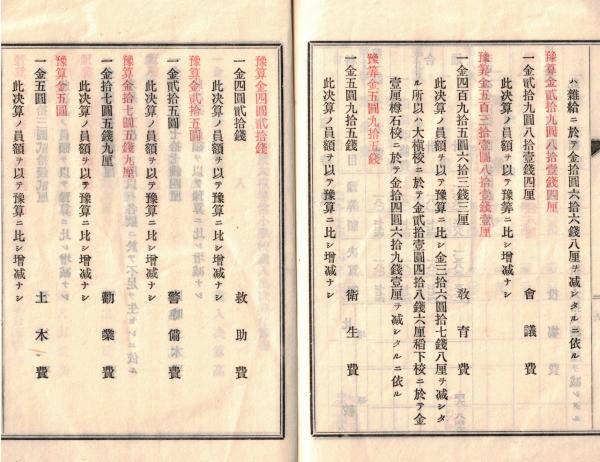 ハ雜給ニ於テ金拾圓六拾六錢八厘ヲ減シタルニ依ル
豫算金貳拾九圓八拾壹錢四厘
一金貳拾九圓八拾壹錢四厘 會議費
此決算ノ員額ヲ以テ豫算ニ比シ增減ナシ
豫算金五百三拾壹圓八拾壹錢壹厘
一金四百九拾五圓六拾三錢三厘 敎育費
此決算ノ員額ヲ以テ豫算ニ比シ金三拾六圓拾七錢八厘ヲ減シタ
ル所以ハ大槇校ニ於テ金貳拾壹圓四拾八錢六厘稻下校ニ於テ金
壹厘樽石校ニ於テ金拾四圓六拾九錢壹厘ヲ減シタルニ依ル
豫算金五圓九拾五錢
一金五圓九拾五錢 衞生費
此決算ノ員額ヲ以テ豫算ニ比シ增減ナシ
豫算金四圓貳拾錢
一金四圓貳拾錢 救助費
此決算ノ員額ヲ以テ豫算ニ比シ增減ナシ
豫算金貳拾五圓
一金貳拾五圓 警備費
此決算ノ員額ヲ以テ豫算ニ比シ增減ナシ
豫算金拾七圓五錢九厘
一金拾七圓五錢九厘 勸業費
此決算ノ員額ヲ以テ豫算ニ比シ增減ナシ
豫算金五圓
一金五圓 土木費
此決算ノ員額ヲ以テ豫算ニ比シ增減ナシ